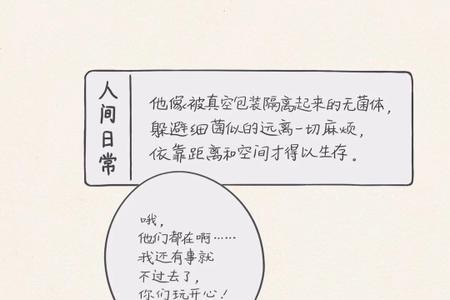 人间日常
他像被真空包装隔离起来的无菌体，
躲避细菌似的远离一切麻烦，
依靠距离和空间才得以生存。
哦，
他们都在啊……
我还有事就
不过去了，
你们玩开心！